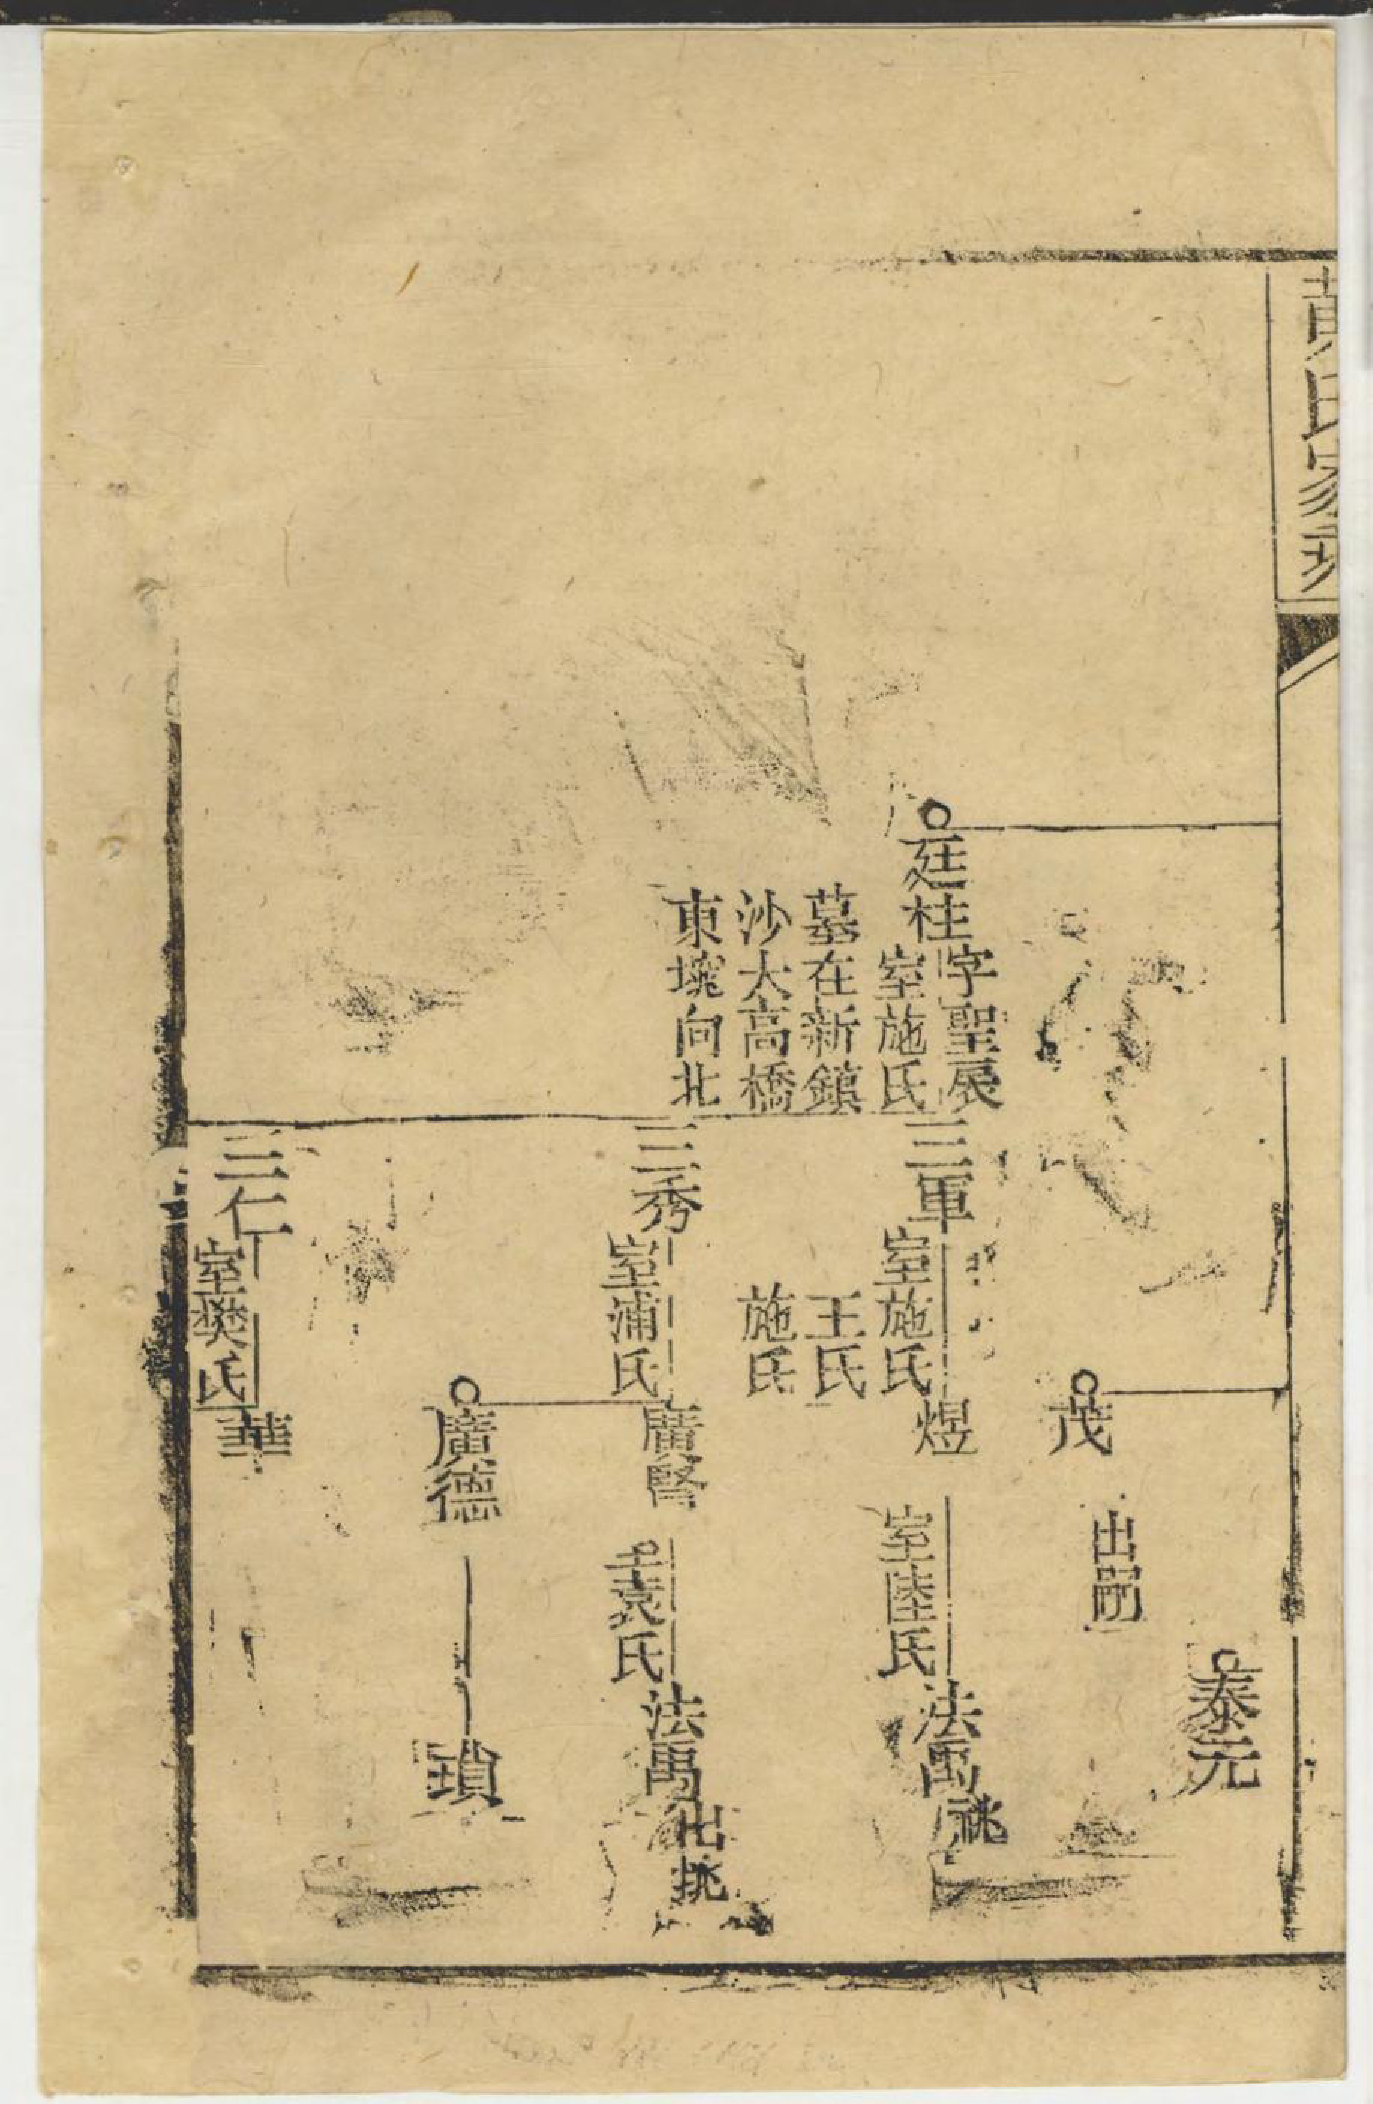 黃氏家
廷桂
字聖辰
室施氏
墓在新鎮
沙大高橋
東塊向北
三軍
室施氏
王氏
施氏
三秀
室浦氏
三仁
室樊氏
茂
出嗣
煜
室陸氏
廣賢
袁氏
廣德
華
泰元
法禹
祧
法禹
出
瑣